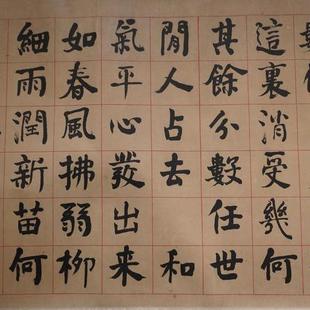 這裏消受幾何
其餘分數任世
閒人占去 和
氣平心發出来
如春風拂弱柳
細雨潤新苗何